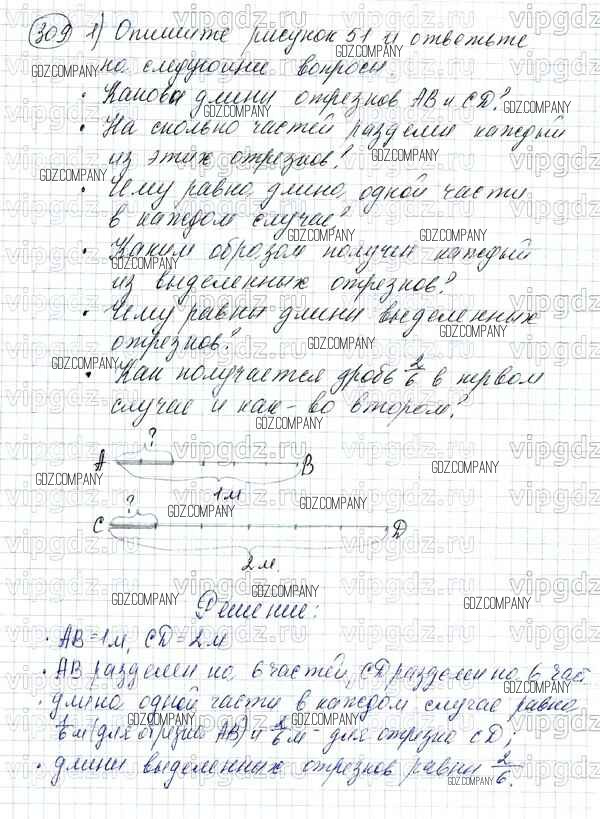 309 1) Опишите рисунок 51 и ответьте
на следующие вопросы.
• Какова длины отрезков AB и CD?
• На сколько частей разделен каждый
из этих отрезков?
• Чему равна длина одной части
в каждом случае?
• Каким образом получен каждый
из выделенных отрезков?
• Чему равны длины выделенных
отрезков?
• Как получается дробь 2/6 в первом
случае и как - во втором?
?
A B
1м
?
C D
2м.
Решение:
• AB = 1м, CD = 2м
• AB разделен на 6 частей, CD разделен на 6 част
• длина одной части в каждом случае равна
1/6 м (для отрезка AB) и 2/6 м - для отрезка CD;
• длины выделенных отрезков равны 2/6.
vipgdz.ru
GDZ.COMPANY